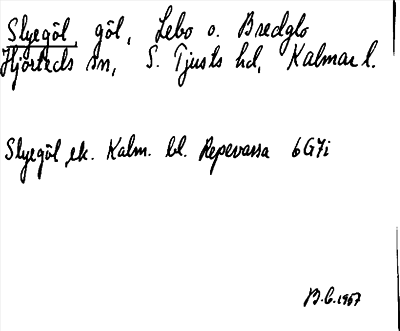 Slyegöl göl, Lebo o. Bredglo
Hjorteds sn, S. Tjusts hd, Kalmar l.
Slyegöl, ek. Kalm. bl. Repevassa 6G7i
B.G. 1967